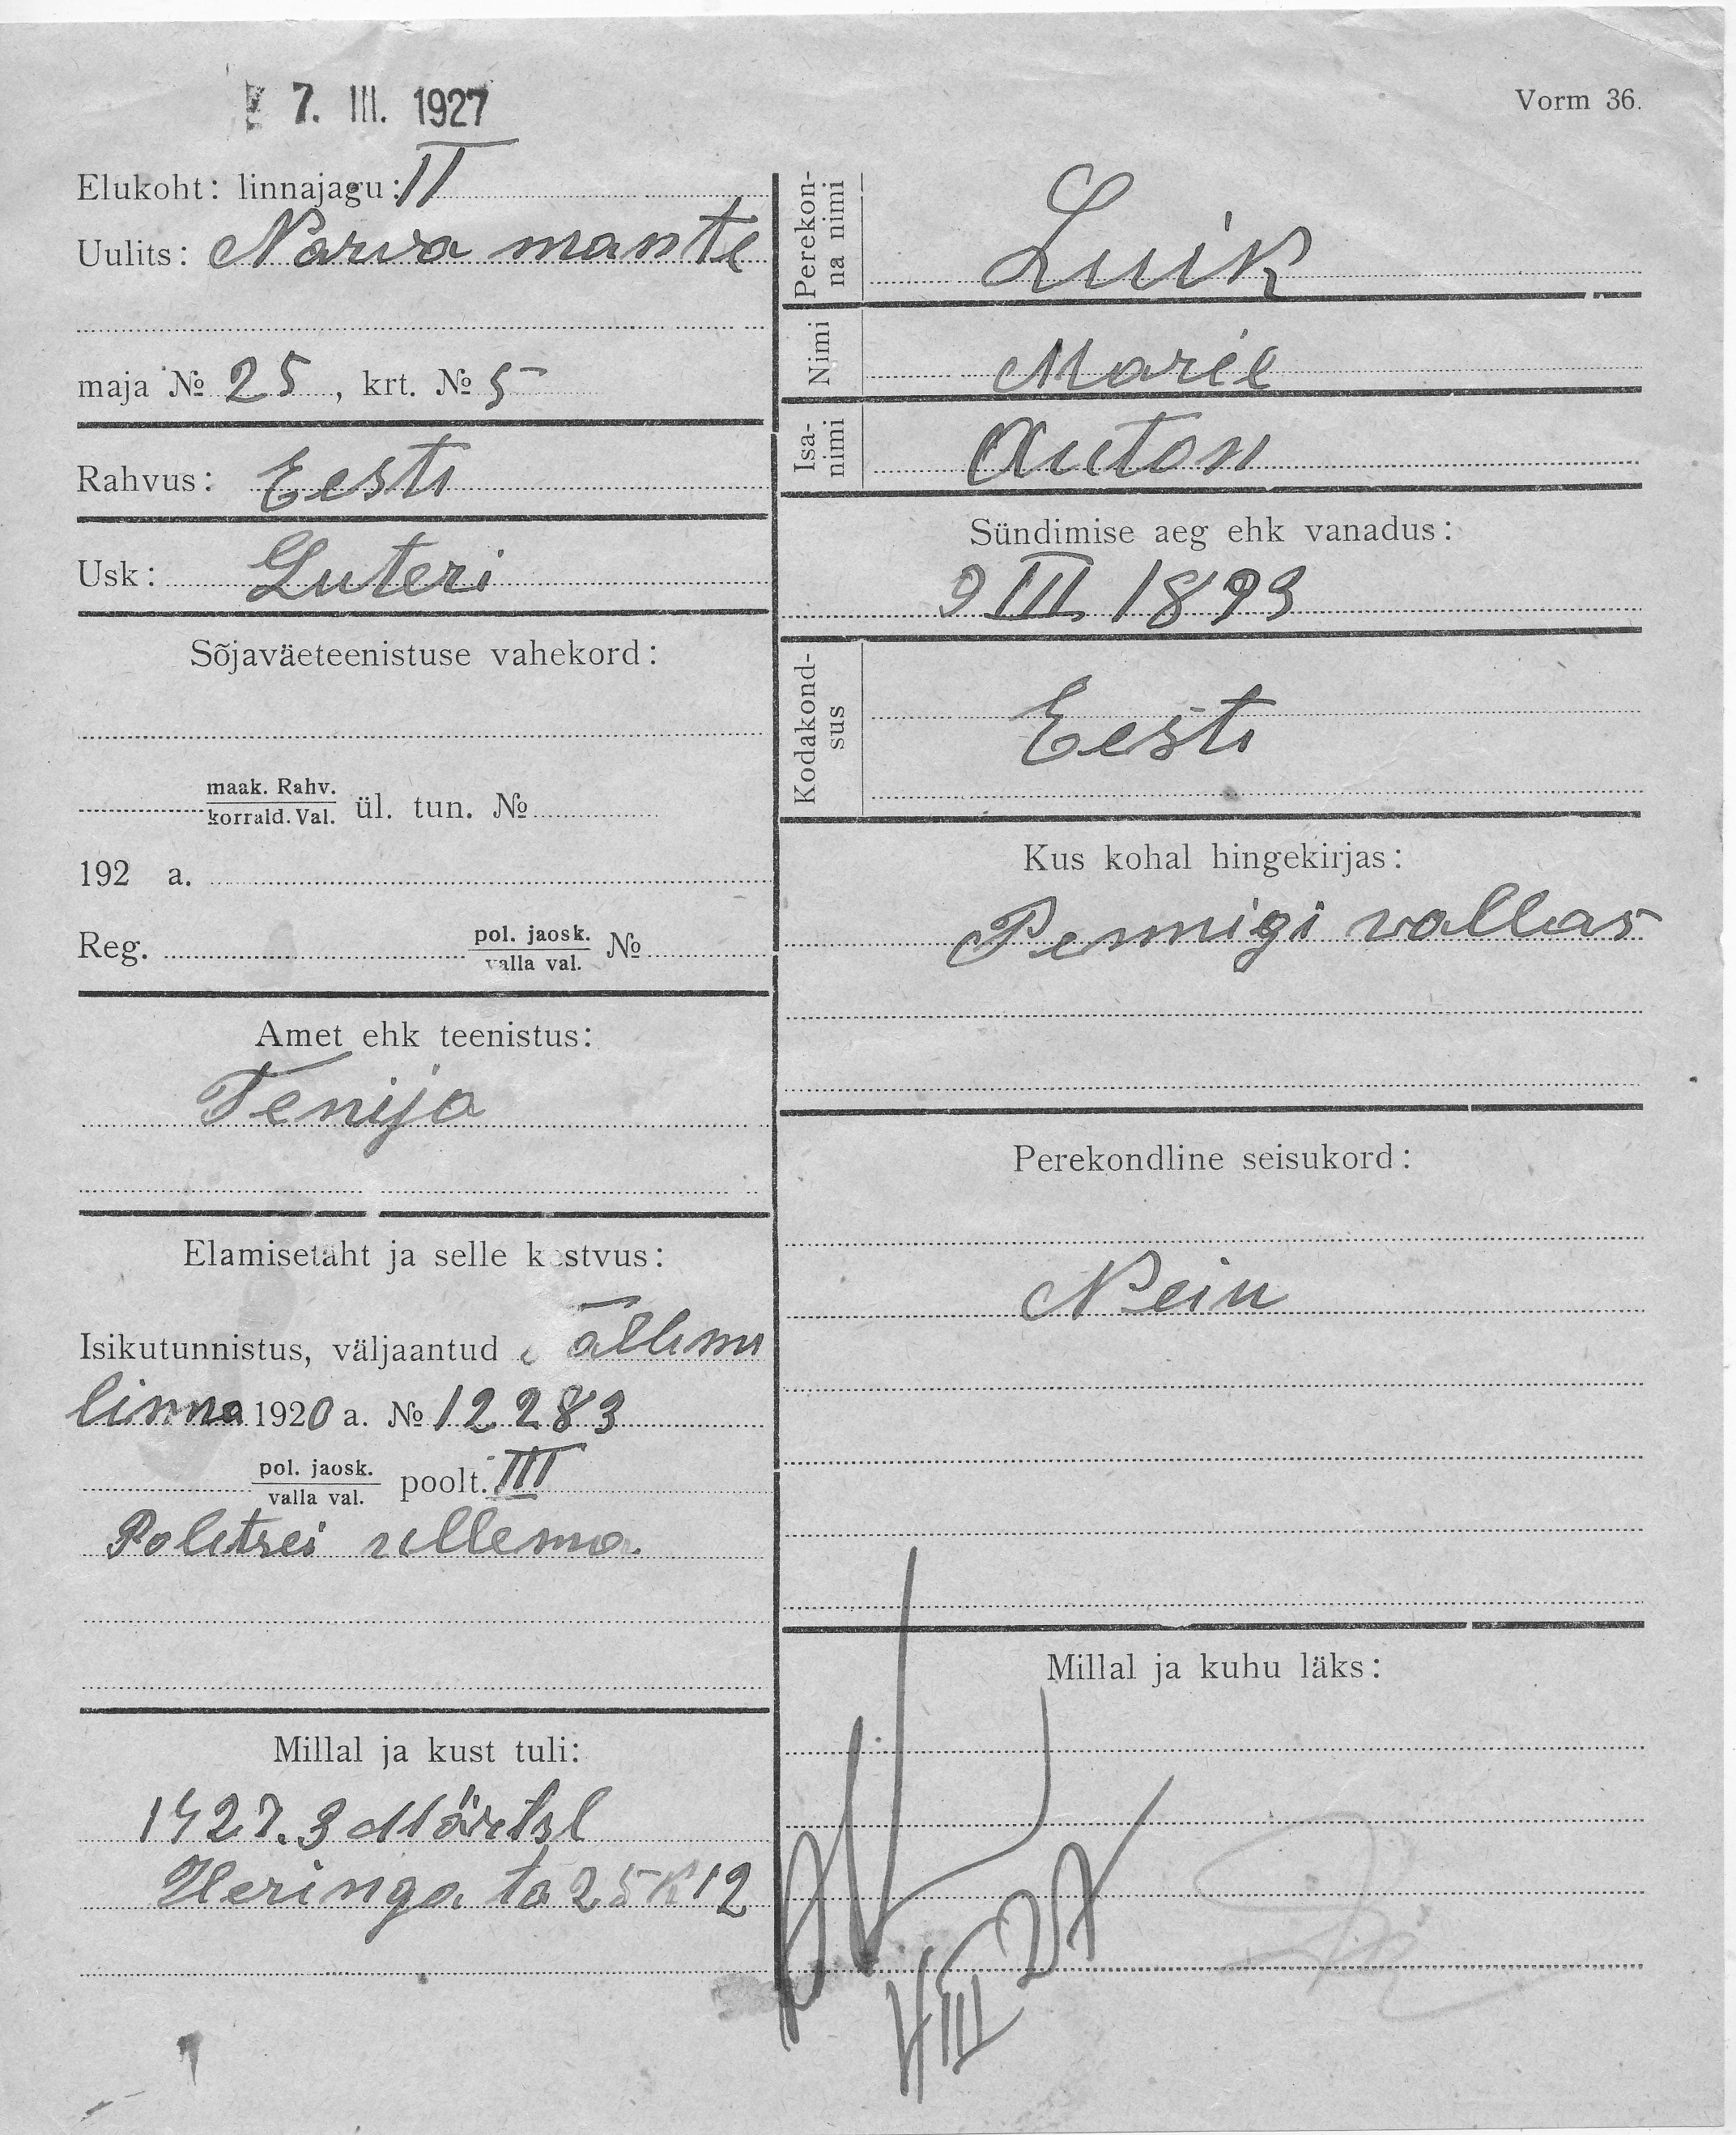 7. III. 1927
Vorm 36.
Elukoht: linnajagu: II
Uulits: Narva mante
maja № 25, krt. № 5
Rahvus: Eesti
Usk: Luteri
Sõjaväeteenistuse vahekord:
maak. Rahv.
korrald. Val. ül. tun. №
192 a.
Reg. pol. jaosk.
valla val. №
Amet ehk teenistus:
Tenija
Elamisetäht ja selle kestvus:
Isikutunnistus, väljaantud
linna 1920 a. № 12283
pol. jaosk.
valla val. poolt. III
Politsei ullema
Millal ja kust tuli:
1927. 3 Märtsl
Heringa ta 25 K 12
Perekonna nimi
Luik
Nimi
Marie
Isanimi
Anton
Sündimise aeg ehk vanadus:
9 III 1893
Kodakondsus
Eesti
Kus kohal hingekirjas:
Pennigi vallas
Perekondline seisukord:
Neiu
Millal ja kuhu läks: